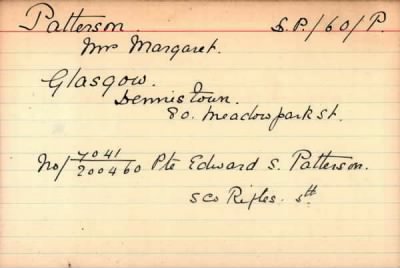 Patterson. S.P./60/P.
Mrs Margaret.
Glasgow.
Dennistown.
80. Meadowpark St.
No/ 7041/200460 Pte Edward S. Patterson.
Sco Rifles. 5th